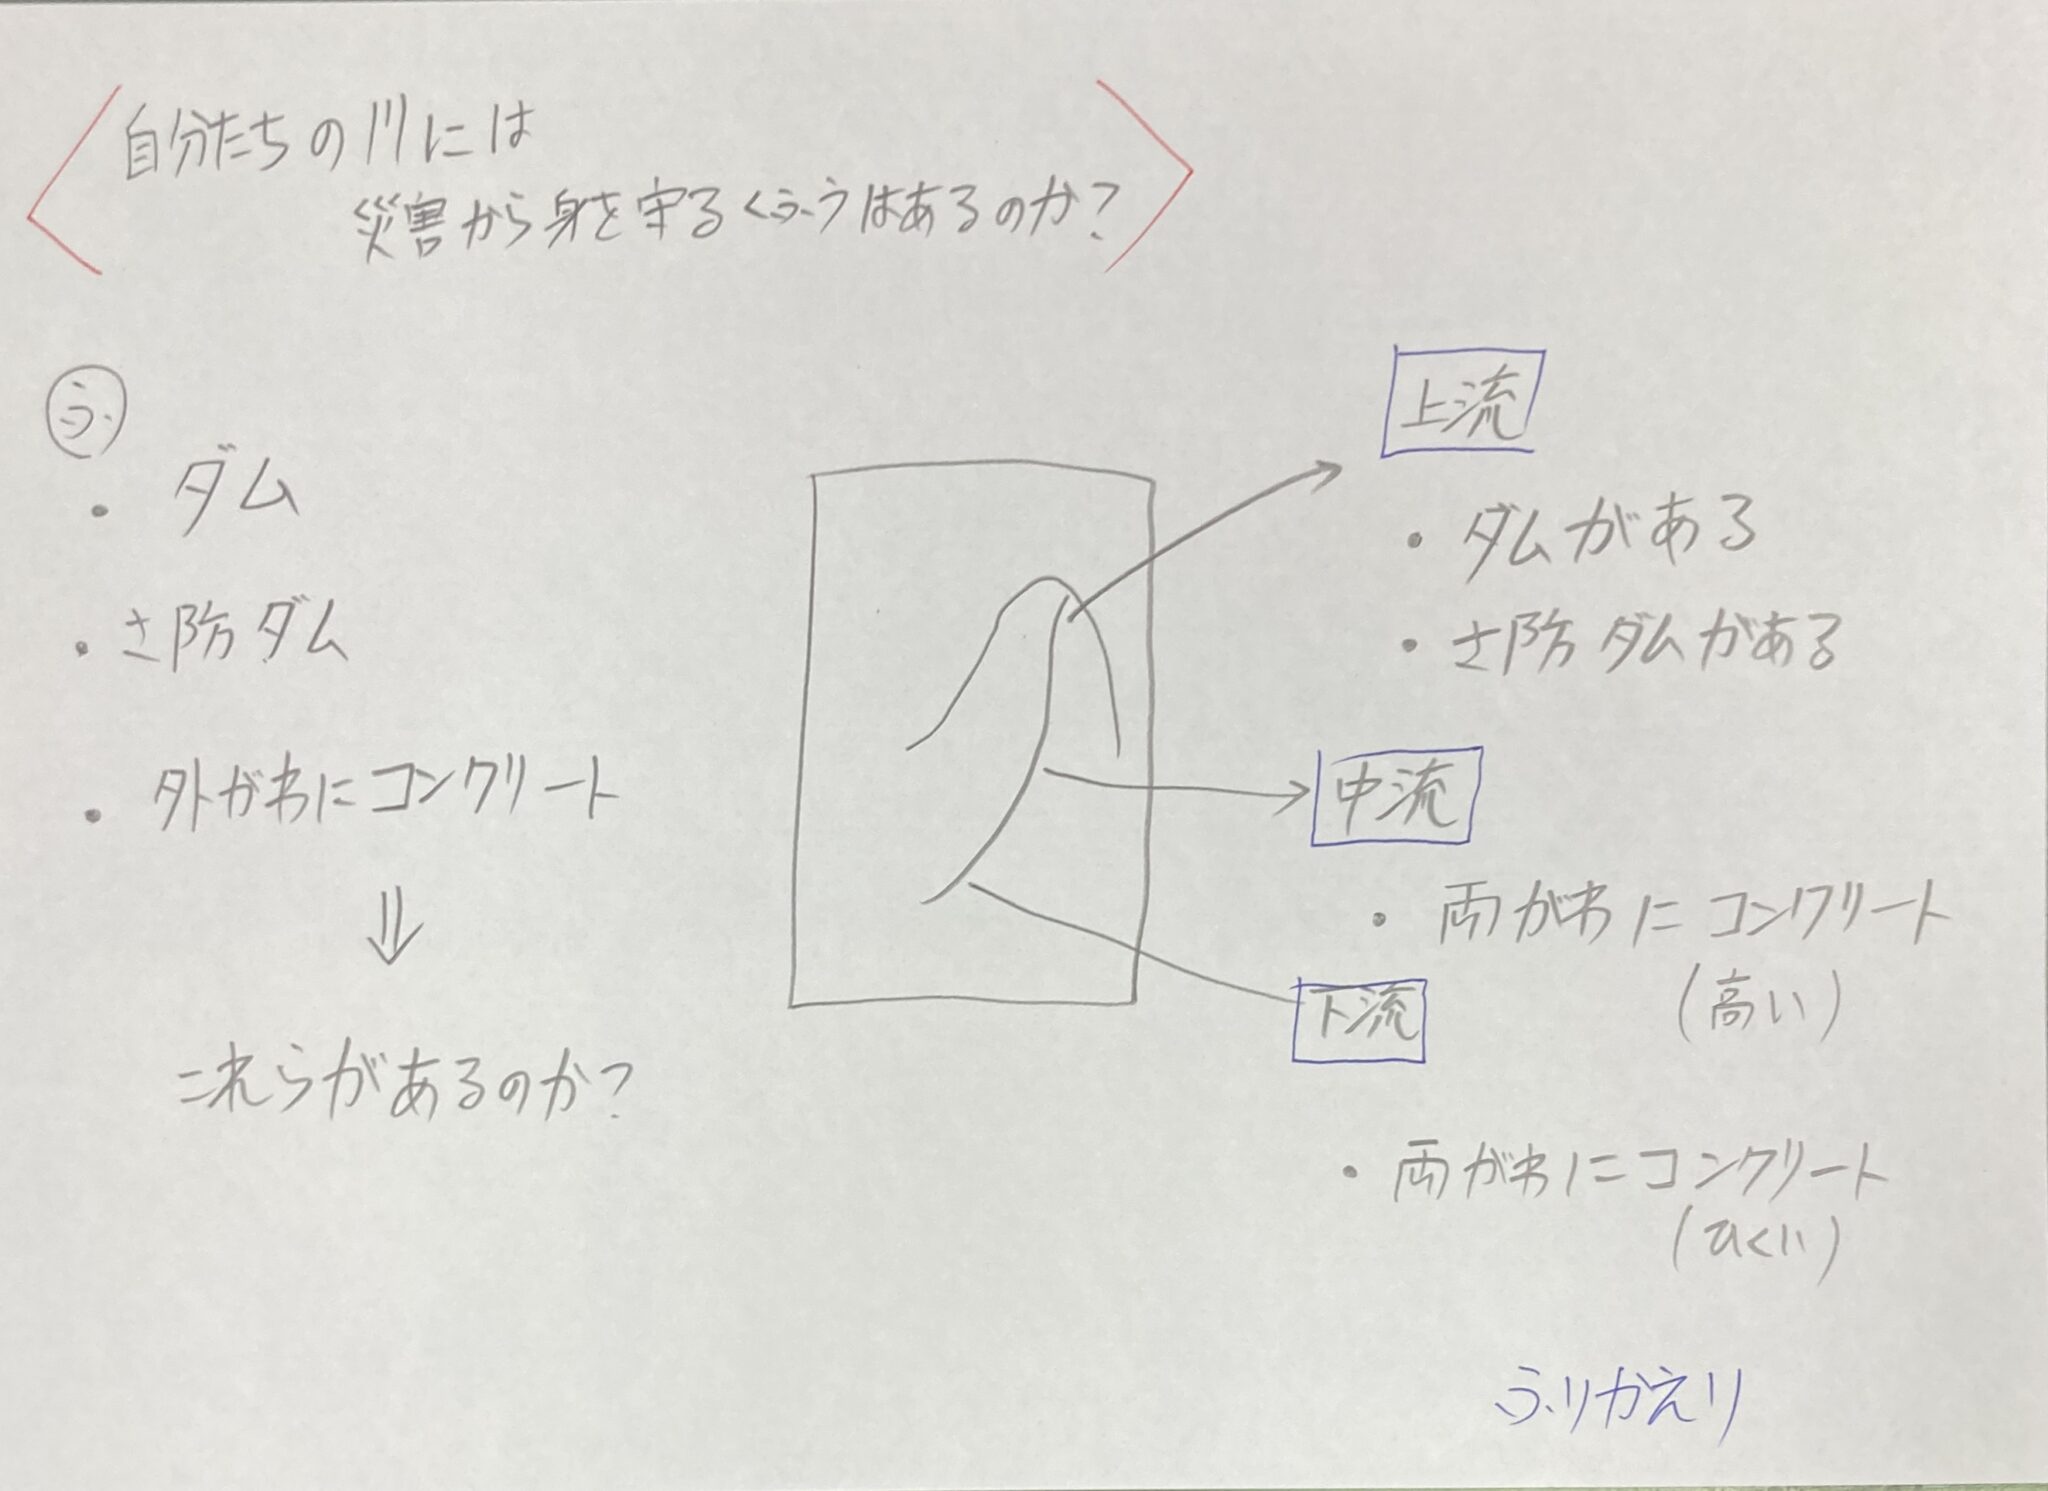 自分たちの川には
災害から身を守るくふうはあるのか?
ふ
・ダム
・さ防ダム
・外がわにコンクリート
⇓
これらがあるのか?
上流
・ダムがある
・さ防ダムがある
中流
・両がわにコンクリート
(高い)
下流
・両がわにコンクリート
(ひくい)
ふりかえり